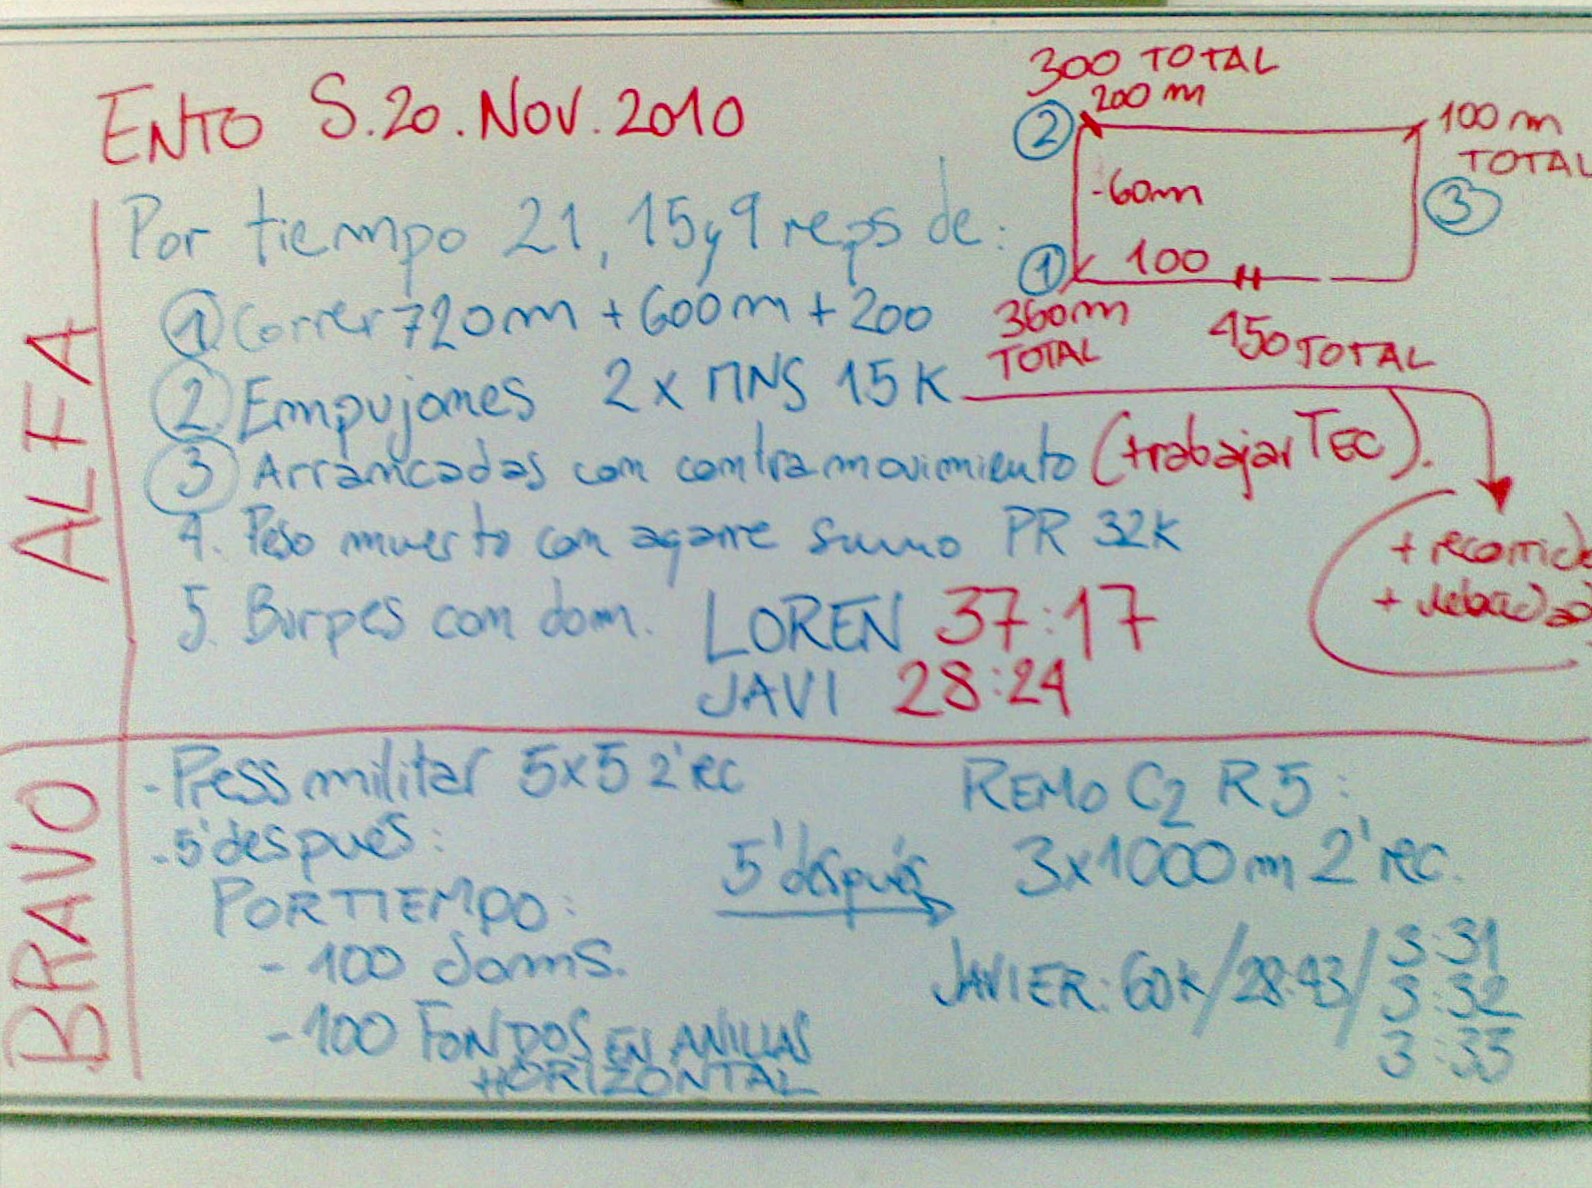 ENTO S.20.NOV.2010
300 TOTAL
200 m
2
100 m
TOTAL
3
-60m
1
100
360m
TOTAL
450 TOTAL
ALFA
Por tiempo 21, 15 y 9 reps de:
1 Correr 720m + 600m + 200
2 Empujones 2 x MNS 15K
3 Arrancadas con contramovimiento (trabajar TEC).
+ recorrido
4. Peso muerto con agarre sumo PR 32K
5. Burpes con dom.
LOREN 37:17
JAVI 28:24
BRAVO
- Press militar 5x5 2' rec
- 5' después:
POR TIEMPO:
- 100 doms.
- 100 FONDOS EN ANILLAS
HORIZONTAL
5' después
REMO C2 R5:
3x1000m 2' rec.
JAVIER: 60K/28:43/ 3:31
3:32
3:33